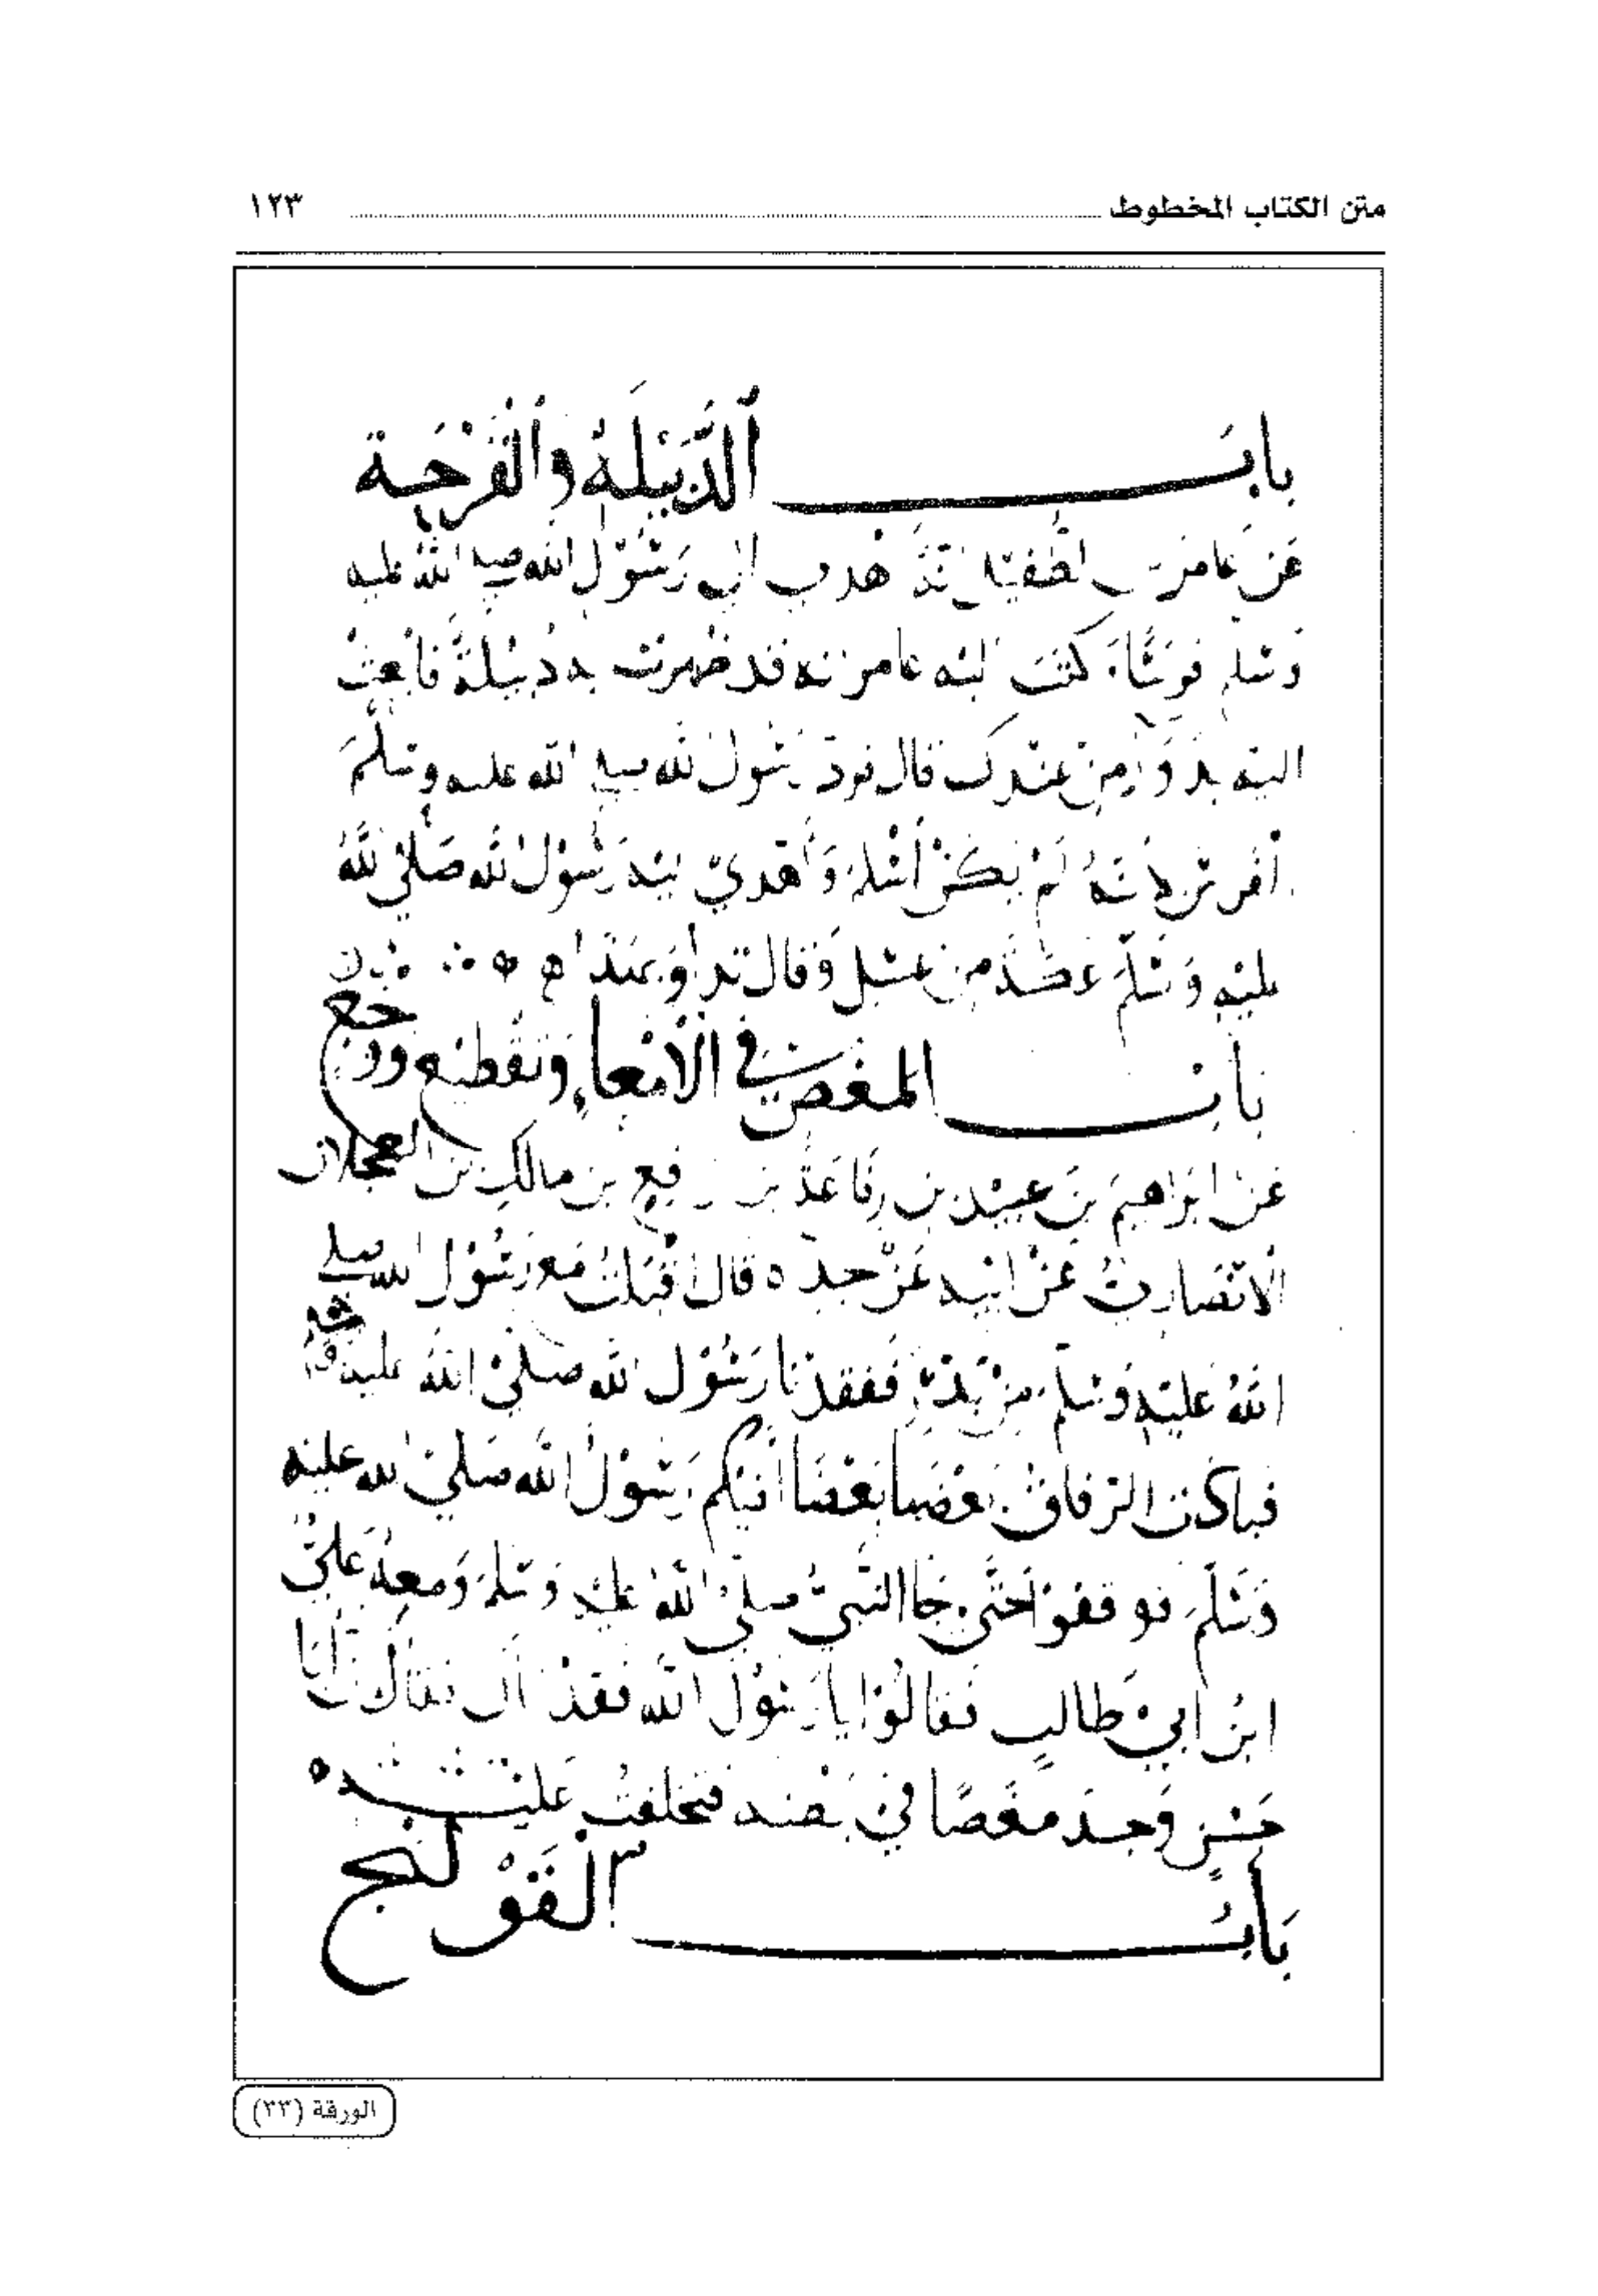 متن الكتاب المخطوط ١٢٣
باب الدُّبَيْلَة والقَرْحَة
عَن عَامر بن الطفيل أنه أهدى إلى رَسُول الله صلى الله عليه
وَسَلم فرسًا، وكتب إليه عامر إنه قد ظهرت به دُبَيْلَةٌ فابعَثْ
إليه بدواء من عندك قال فردَّ رَسُول الله صلى الله عليه وسَلَّمَ
الفرس لأَنَّهُ لَمْ يَكُنْ أَسْلَمَ وَأهْدى إليه رَسُول الله صَلَّى اللهُ
عليه وَسَلَّمَ عكَّةً من عسَلٍ وَقال تداوَ بهَذا
باب المغَص في الأَمْعَاء وتَقْطيعه ووجع
عَن ابَراهيمَ بن عبيد بن رفَاعَة بن رافع بن مالك بن العجلان
الأنْصَاري عَنْ ابيه عَنْ جده قال اقبَلنا مَعَ رَسُول الله صلى
اللهُ عَليْهِ وَسَلمَ مِنْ بَدْرٍ ففقدنَا رَسُول الله صَلى اللهُ عليه
فنادَت الرفاق بعضها بَعْضًا أَفيكم رَسُولُ الله صَلى الله عليه
وَسَلَّمَ فوقفوا حَتَّى جَا النَّبيُّ صلى اللهُ عليه وَسَلمَ وَمعهُ عَليُّ
ابنُ ابي طالبٍ فقالُوا يا رَسُولَ الله فقدناك فقال إن أبَا
حَسَنٍ وَجدَ مغَصًا في بَطْنه فتخلفْتُ عَليْه
بَابُ القَوْلنج
الورقة (٢٣)